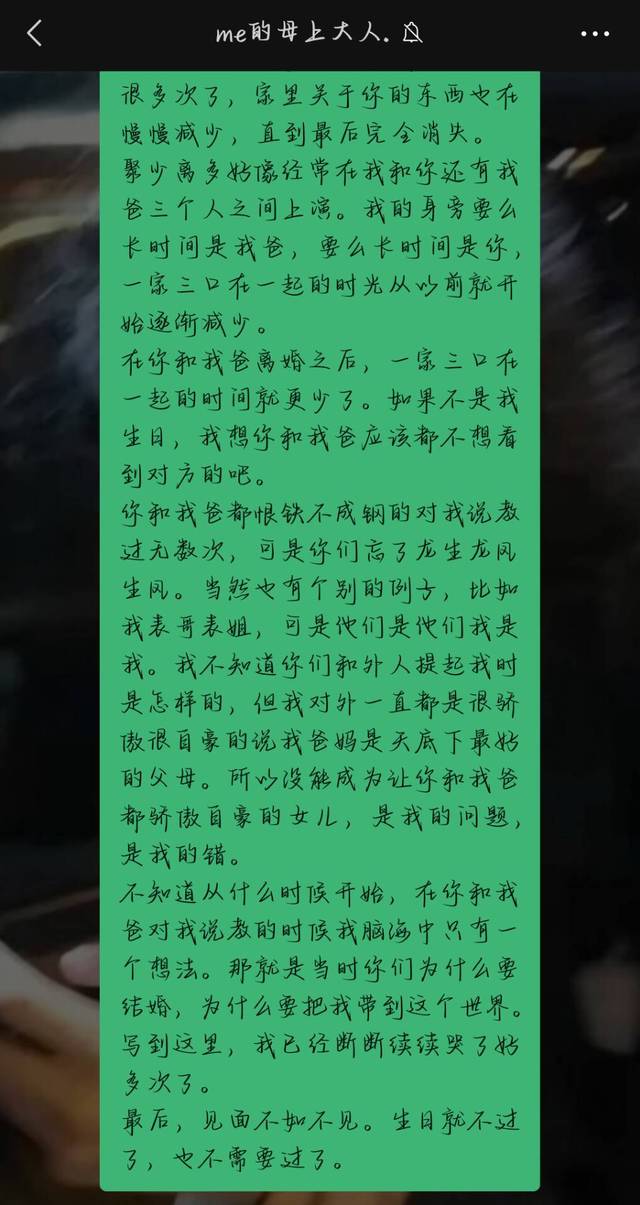 me的母上大人.
很多次了，家里关于你的东西也在
慢慢减少，直到最后完全消失。
聚少离多好像经常在我和你还有我
爸三个人之间上演。我的身旁要么
长时间是我爸，要么长时间是你，
一家三口在一起的时光从以前就开
始逐渐减少。
在你和我爸离婚之后，一家三口在
一起的时间就更少了。如果不是我
生日，我想你和我爸应该都不想看
到对方的吧。
你和我爸都恨铁不成钢的对我说教
过无数次，可是你们忘了龙生龙凤
生凤。当然也有个别的例子，比如
我表哥表姐，可是他们是他们我是
我。我不知道你们和外人提起我时
是怎样的，但我对外一直都是很骄
傲很自豪的说我爸妈是天底下最好
的父母。所以没能成为让你和我爸
都骄傲自豪的女儿，是我的问题，
是我的错。
不知道从什么时候开始，在你和我
爸对我说教的时候我脑海中只有一
个想法。那就是当时你们为什么要
结婚，为什么要把我带到这个世界。
写到这里，我已经断断续续哭了好
多次了。
最后，见面不如不见。生日就不过
了，也不需要过了。